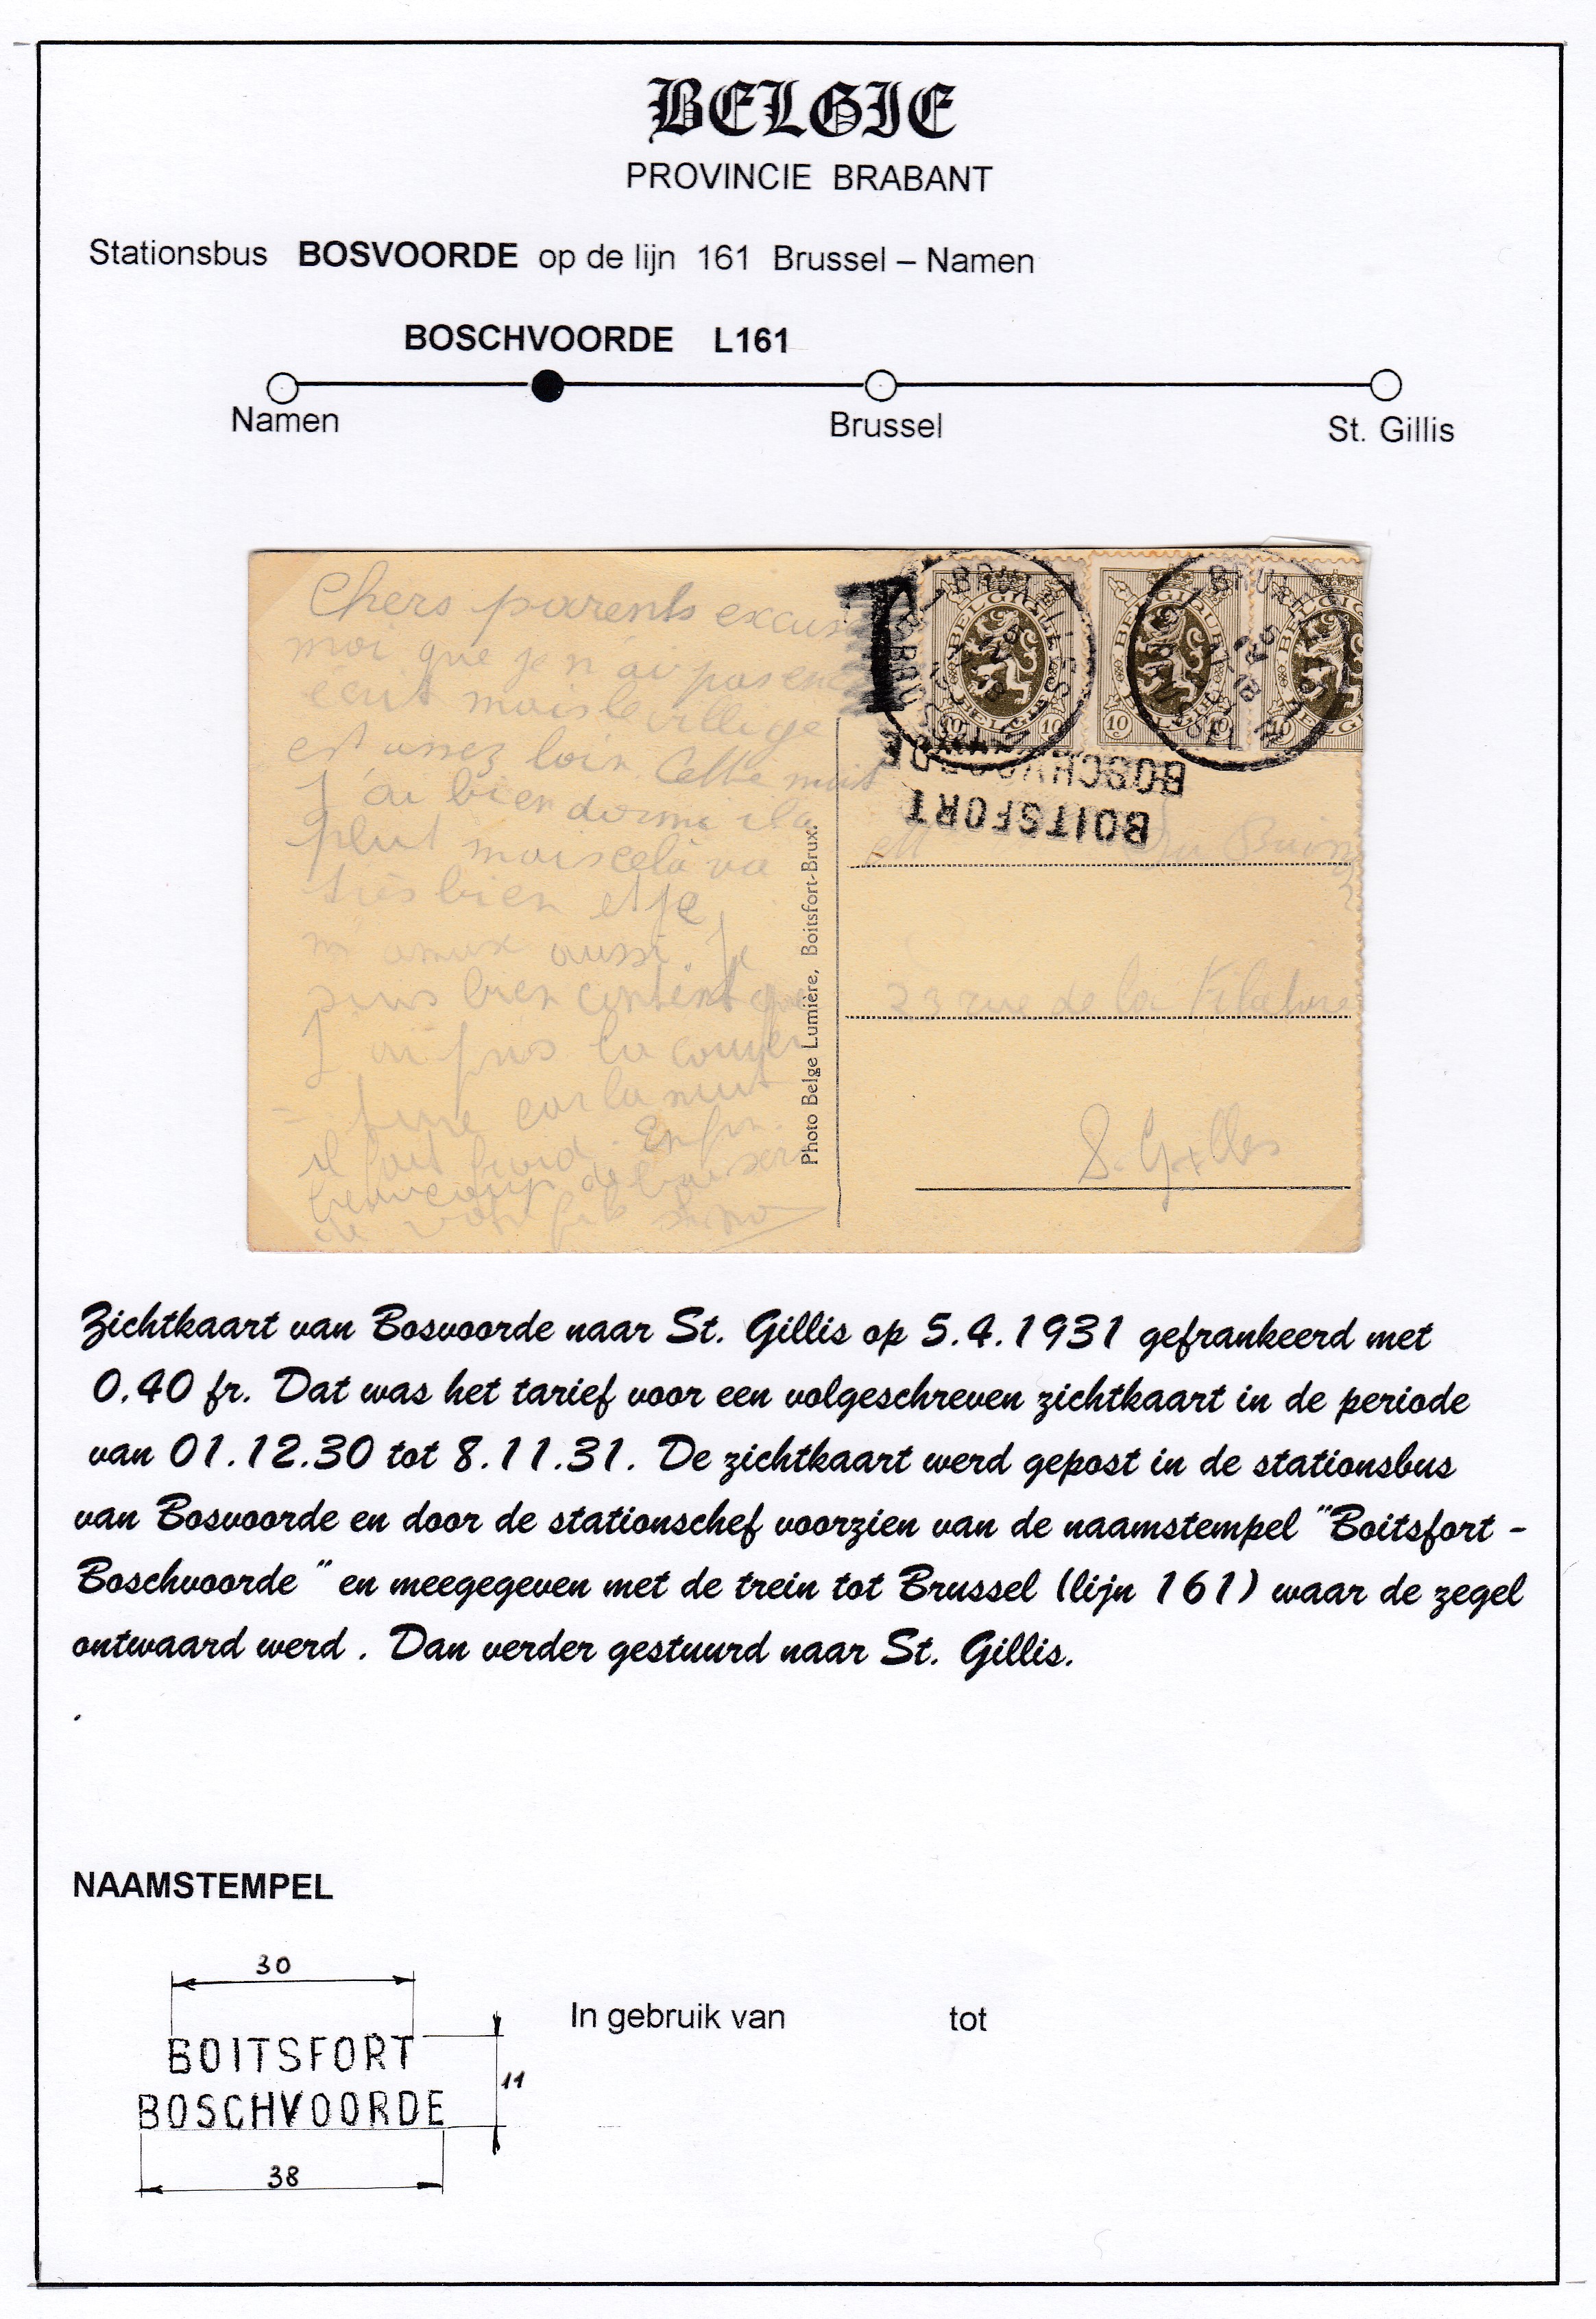 BELGIE
PROVINCIE BRABANT
Stationsbus BOSVOORDE op de lijn 161 Brussel – Namen
BOSCHVOORDE L161
Namen
Brussel
St. Gillis
Chers parents excus
moi que je n'ai pas enc
écrit mais le village
est assez loin. Cette nuit
J'ai bien dormi il a
plut mais celà va
très bien et je
m'amuse aussi. Je
suis bien content que
J'ai pris la couver
= ture car la nuit
il fait froid. Enfin
beaucoup de baisers
de votre fils
Photo Belge Lumière, Boitsfort-Brux.
T
BRUXELLES
BELGIQUE
BELGIE
10 10
BELGIQUE
10
10
BOSCHVOORDE
BOITSFORT
23 rue de la Filature
S. Gilles
Zichtkaart van Bosvoorde naar St. Gillis op 5.4.1931 gefrankeerd met
0.40 fr. Dat was het tarief voor een volgeschreven zichtkaart in de periode
van 01.12.30 tot 8.11.31. De zichtkaart werd gepost in de stationsbus
van Bosvoorde en door de stationschef voorzien van de naamstempel "Boitsfort -
Boschvoorde " en meegegeven met de trein tot Brussel (lijn 161) waar de zegel
ontwaard werd . Dan verder gestuurd naar St. Gillis.
.
NAAMSTEMPEL
30
BOITSFORT
BOSCHVOORDE
11
38
In gebruik van tot